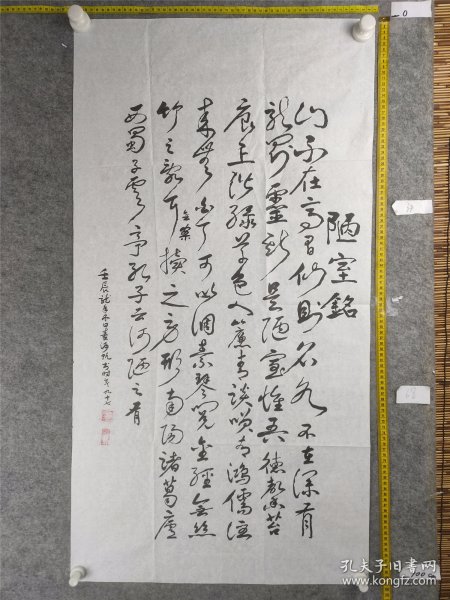 陋室銘
山不在高有仙則名水不在深有
龍則靈斯是陋室惟吾德馨苔
痕上階綠草色入簾青談笑有鴻儒往
來無白丁可以調素琴閱金經無絲
竹之亂耳無案牘之勞形南陽諸葛廬
西蜀子雲亭孔子云何陋之有
壬辰龍年 書時年九十七
孔夫子旧书网
www.kongfz.com